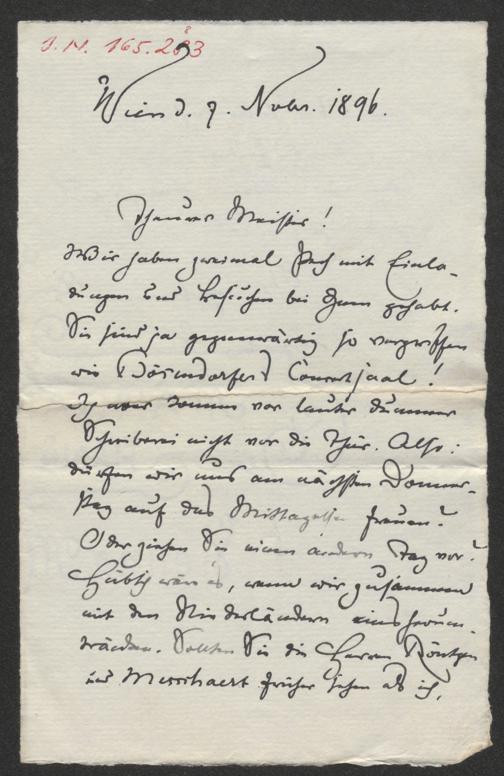 J. N. 165.283
Wien d. 9. Novbr. 1896.
Theurer Meister!
Wir haben zweimal Pech mit Einla-
dungen und Besuchen bei Ihnen gehabt.
Sie sind ja gegenwärtig so vergriffen
wie Bösendorfers Concertsaal!
Ich aber komme vor lauter dummer
Schreiberei nicht vor die Thür. Also:
dürfen wir uns am nächsten Donner-
stag auf das Mittagessen freuen?
Oder ziehen Sie einen andern Tag vor?
Hübsch wäre es, wenn wir zusammen
mit den Niederländern
würden. Sollten Sie die Herren Röntgen
und Messchaert früher sehen als ich,